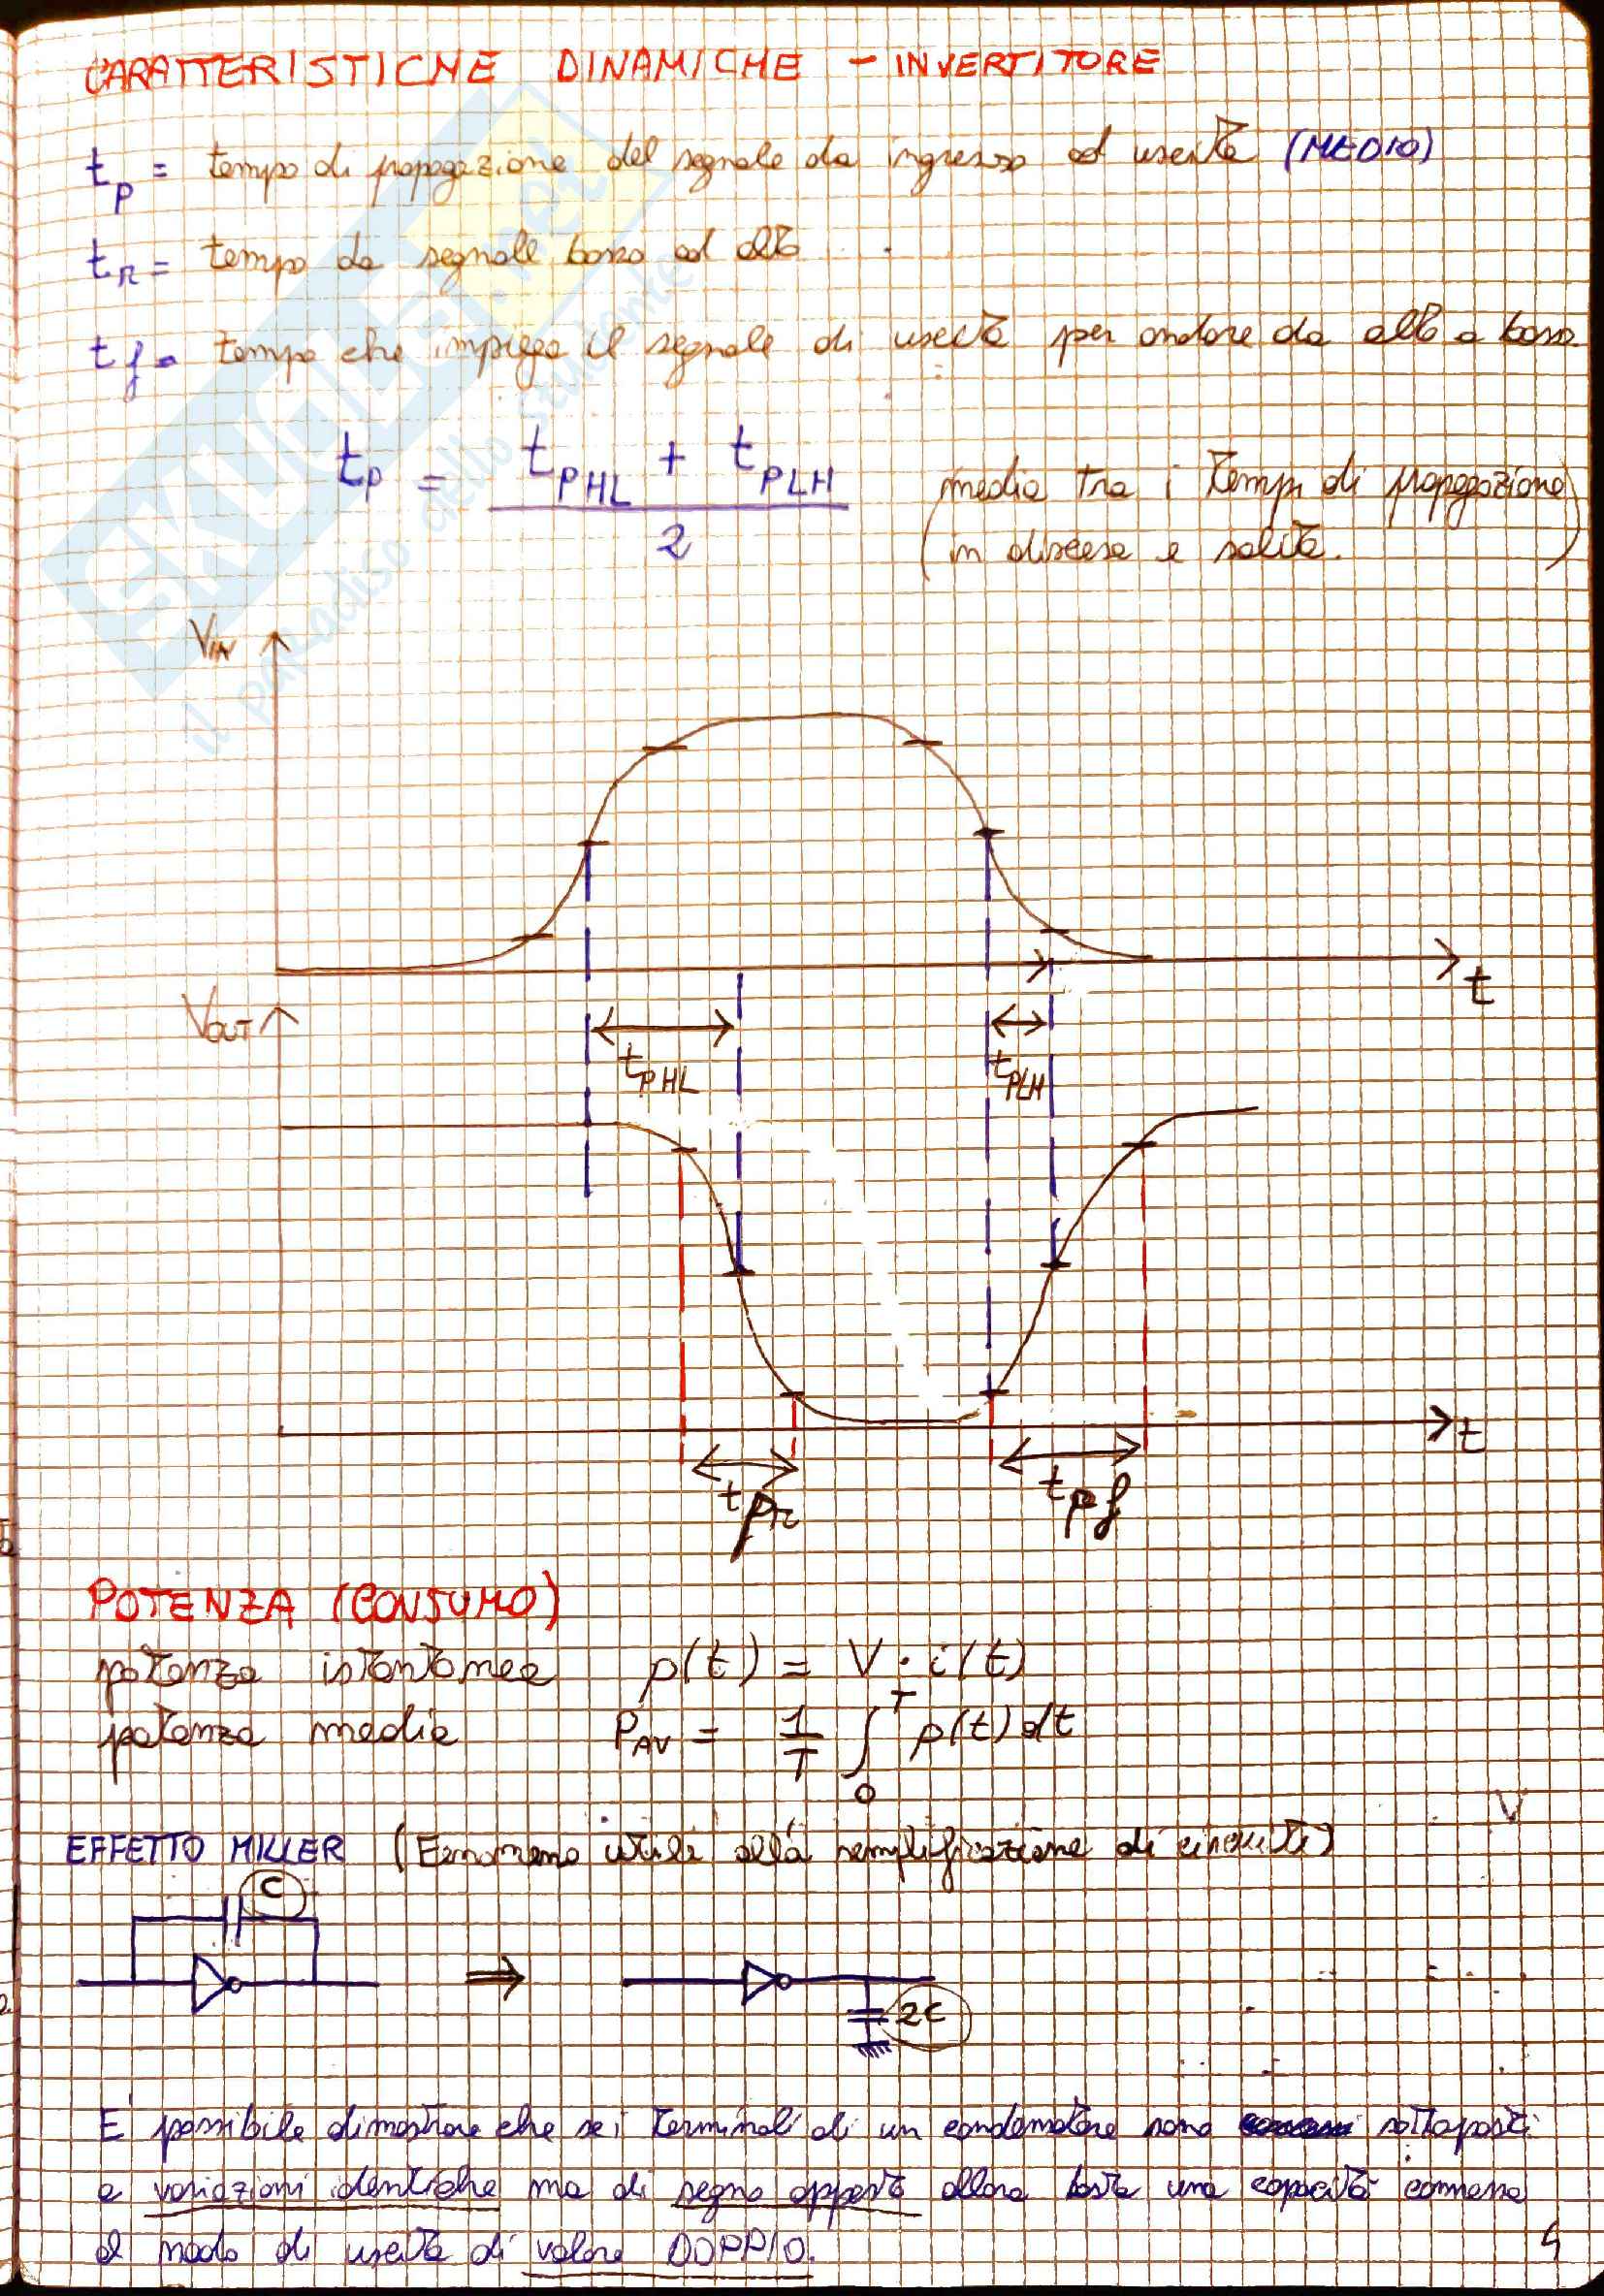 CARATTERISTICHE DINAMICHE - INVERTITORE
tp = tempo di propagazione del segnale da ingresso ad uscita (MEDIO)
tr = tempo da segnale basso ad alto
tf = tempo che impiega il segnale di uscita per andare da alto a basso
tP = (tPHL + tPLH) / 2 (media tra i tempi di propagazione
in discesa e salita.)
VIN
t
VOUT
tPHL tPLH
t
tpr tpf
POTENZA (CONSUMO)
potenza istantanea p(t) = V · i(t)
potenza media PAV = 1/T ∫0T p(t) dt
V
EFFETTO MILLER (Fenomeno utile alla semplificazione di circuiti)
C
⇒ 2C
E' possibile dimostrare che se i terminali di un condensatore sono sottoposti
a variazioni identiche ma di segno opposto allora basta una capacità connessa
al nodo di uscita di valore DOPPIO.
4
SKUOLA.net
il paradiso dello studente